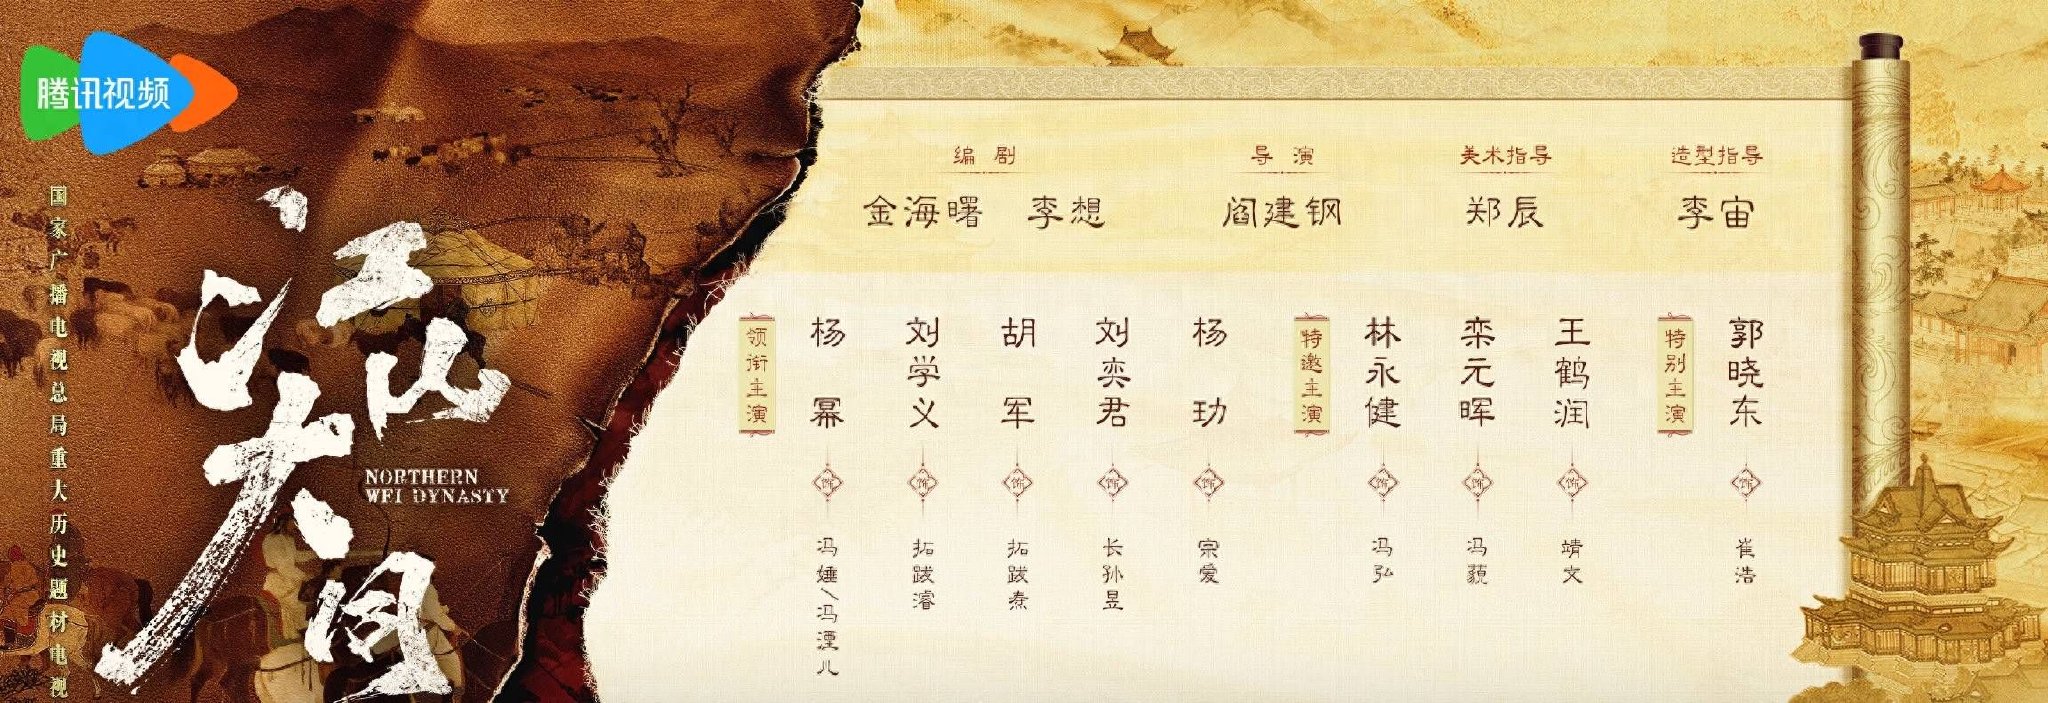 腾讯视频
国家广播电视总局重大历史题材电视
江山大同
NORTHERN
WEI DYNASTY
编剧
金海曙 李想
导演
阎建钢
美术指导
郑辰
造型指导
李宙
领衔主演
杨幂
饰
冯娷/冯湮儿
刘学义
饰
拓跋濬
胡军
饰
拓跋焘
刘奕君
饰
长孙昱
杨玏
饰
宗爱
特邀主演
林永健
饰
冯弘
栾元晖
饰
冯藐
王鹤润
饰
靖文
特别主演
郭晓东
饰
崔浩